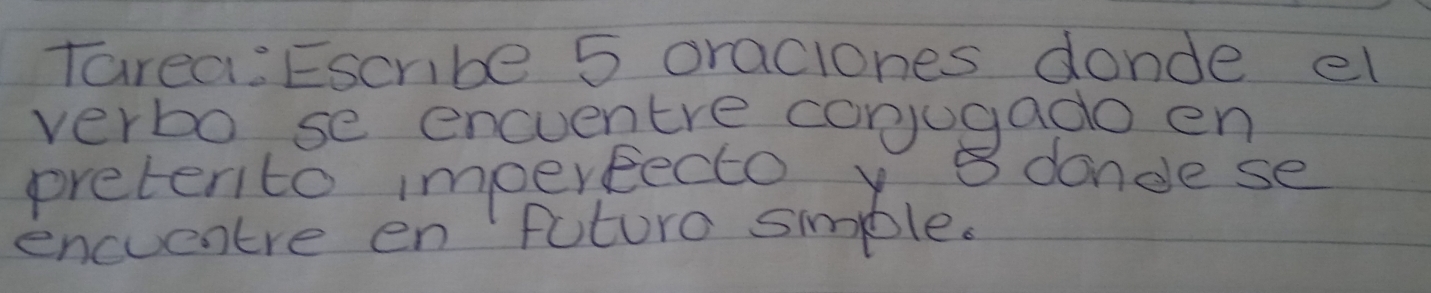 Tarea: Escribe 5 oraciones donde el
verbo se encuentre conjugado en
preterito imperfecto y 5 donde se
encuentre en futuro simple.